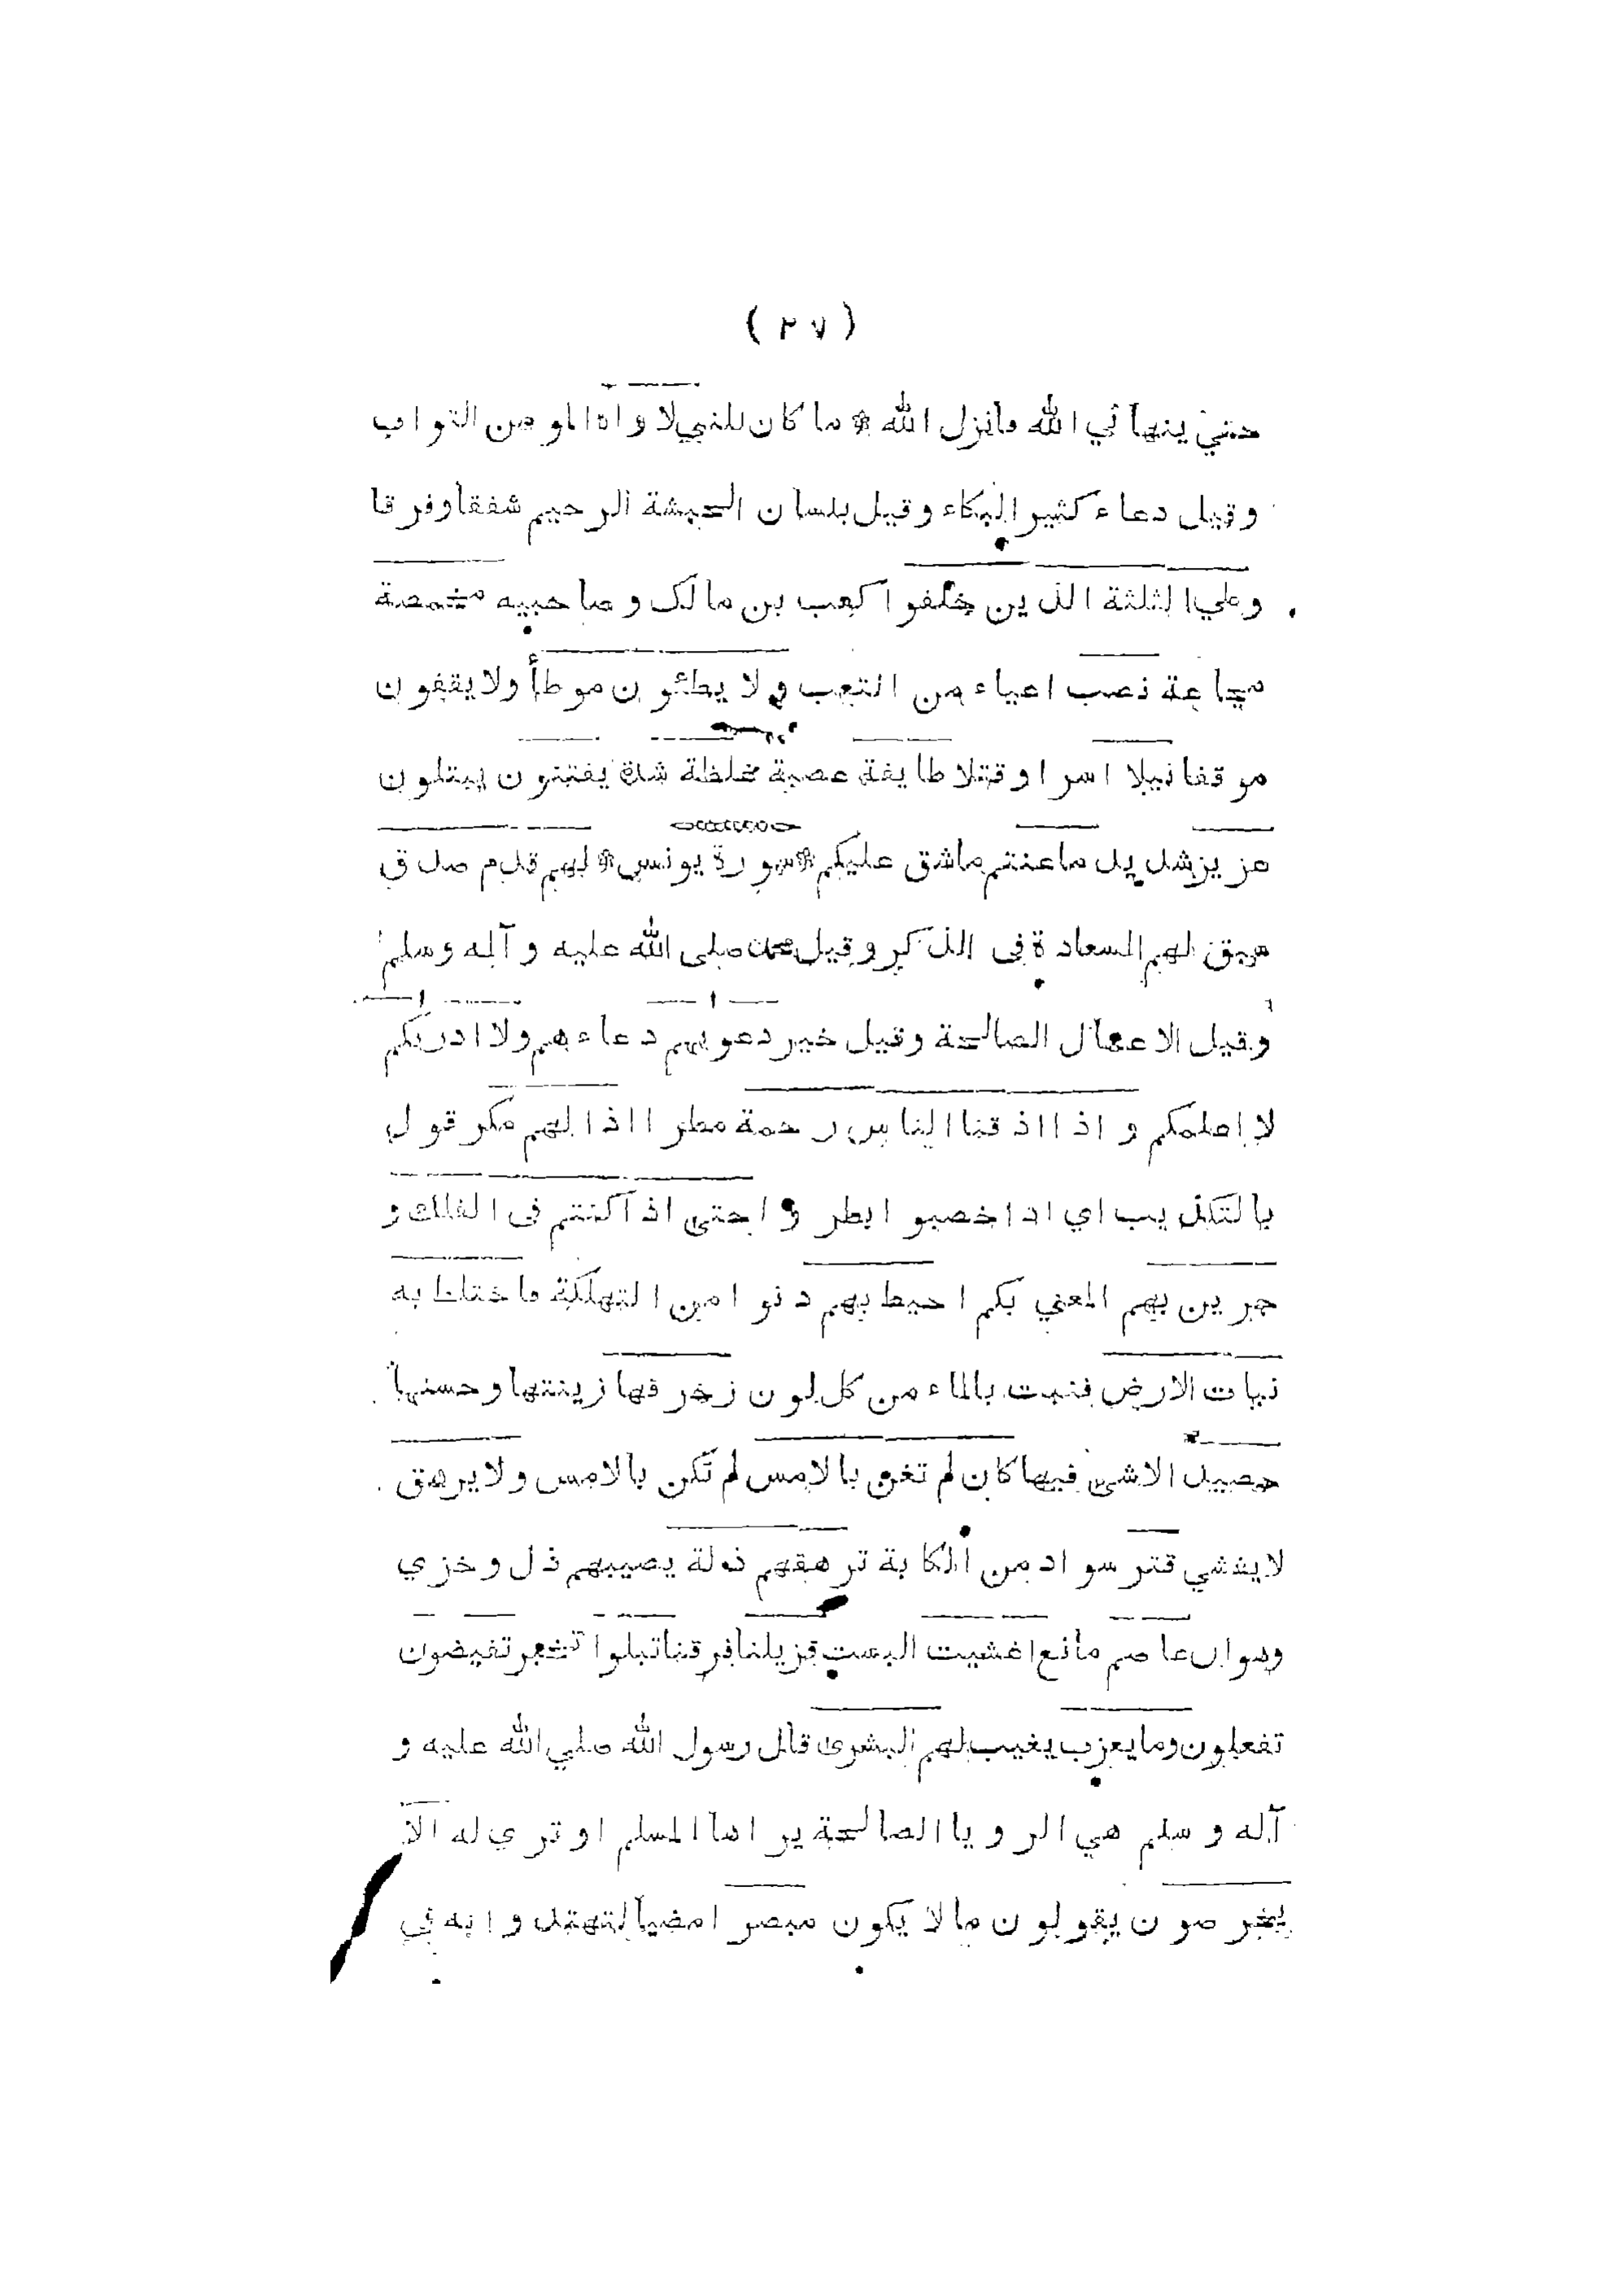 ( ٢٧ )
حتي ينهاني الله فانزل الله * ما كان للنبي لاواه المومن التواب
وقيل دعاء كثير البكاء وقيل بلسان الحبشة الرحيم شفقا وفرقا
وعلي الثلثة الذين خلفوا كعب بن مالك وصاحبيه مخمصة
مجاعة نصب اعياء من التعب ولا يطئون موطأ ولا يقفون
موقفا نيلا اسرا وقتلا طايفة عصبة غلظة شدة يفتنون يبتلون
عزيز شديد ما عنتم ماشق عليكم * سورة يونس * لهم قدم صدق
سبق لهم السعادة فى الذكر وقيل محمد صلى الله عليه وآله وسلم
وقيل الاعمال الصالحة وقيل خير دعويهم دعاءهم ولا ادريكم
لا اعلمكم واذا اذقنا الناس رحمة مطرا اذا لهم مكر قول
بالتكذيب اي اذا خصبوا ابطروا حتى اذا كنتم فى الفلك و
جرين بهم المعني بكم احيط بهم دنوا من التهلكة فاختلط به
نبات الارض فنبت بالماء من كل لون زخرفها زينتها وحسنها
حصيدا لاشى فيها كان لم تغن بالامس لم تكن بالامس ولا يرهق
لا يغشي قتر سواد من الكابة ترهقهم ذلة يصيبهم ذل وخزي
وهوان عاصم مانع اغشيت البست فزيلنا فرقنا تبلوا تخبر تفيضون
تفعلون وما يعزب يغيب لهم البشرى قال رسول الله صلي الله عليه و
آله وسلم هي الرويا الصالحة يراها المسلم او تري له الا
يخرصون يقولون ما لا يكون مبصرا مضيا لتهتدوا به في